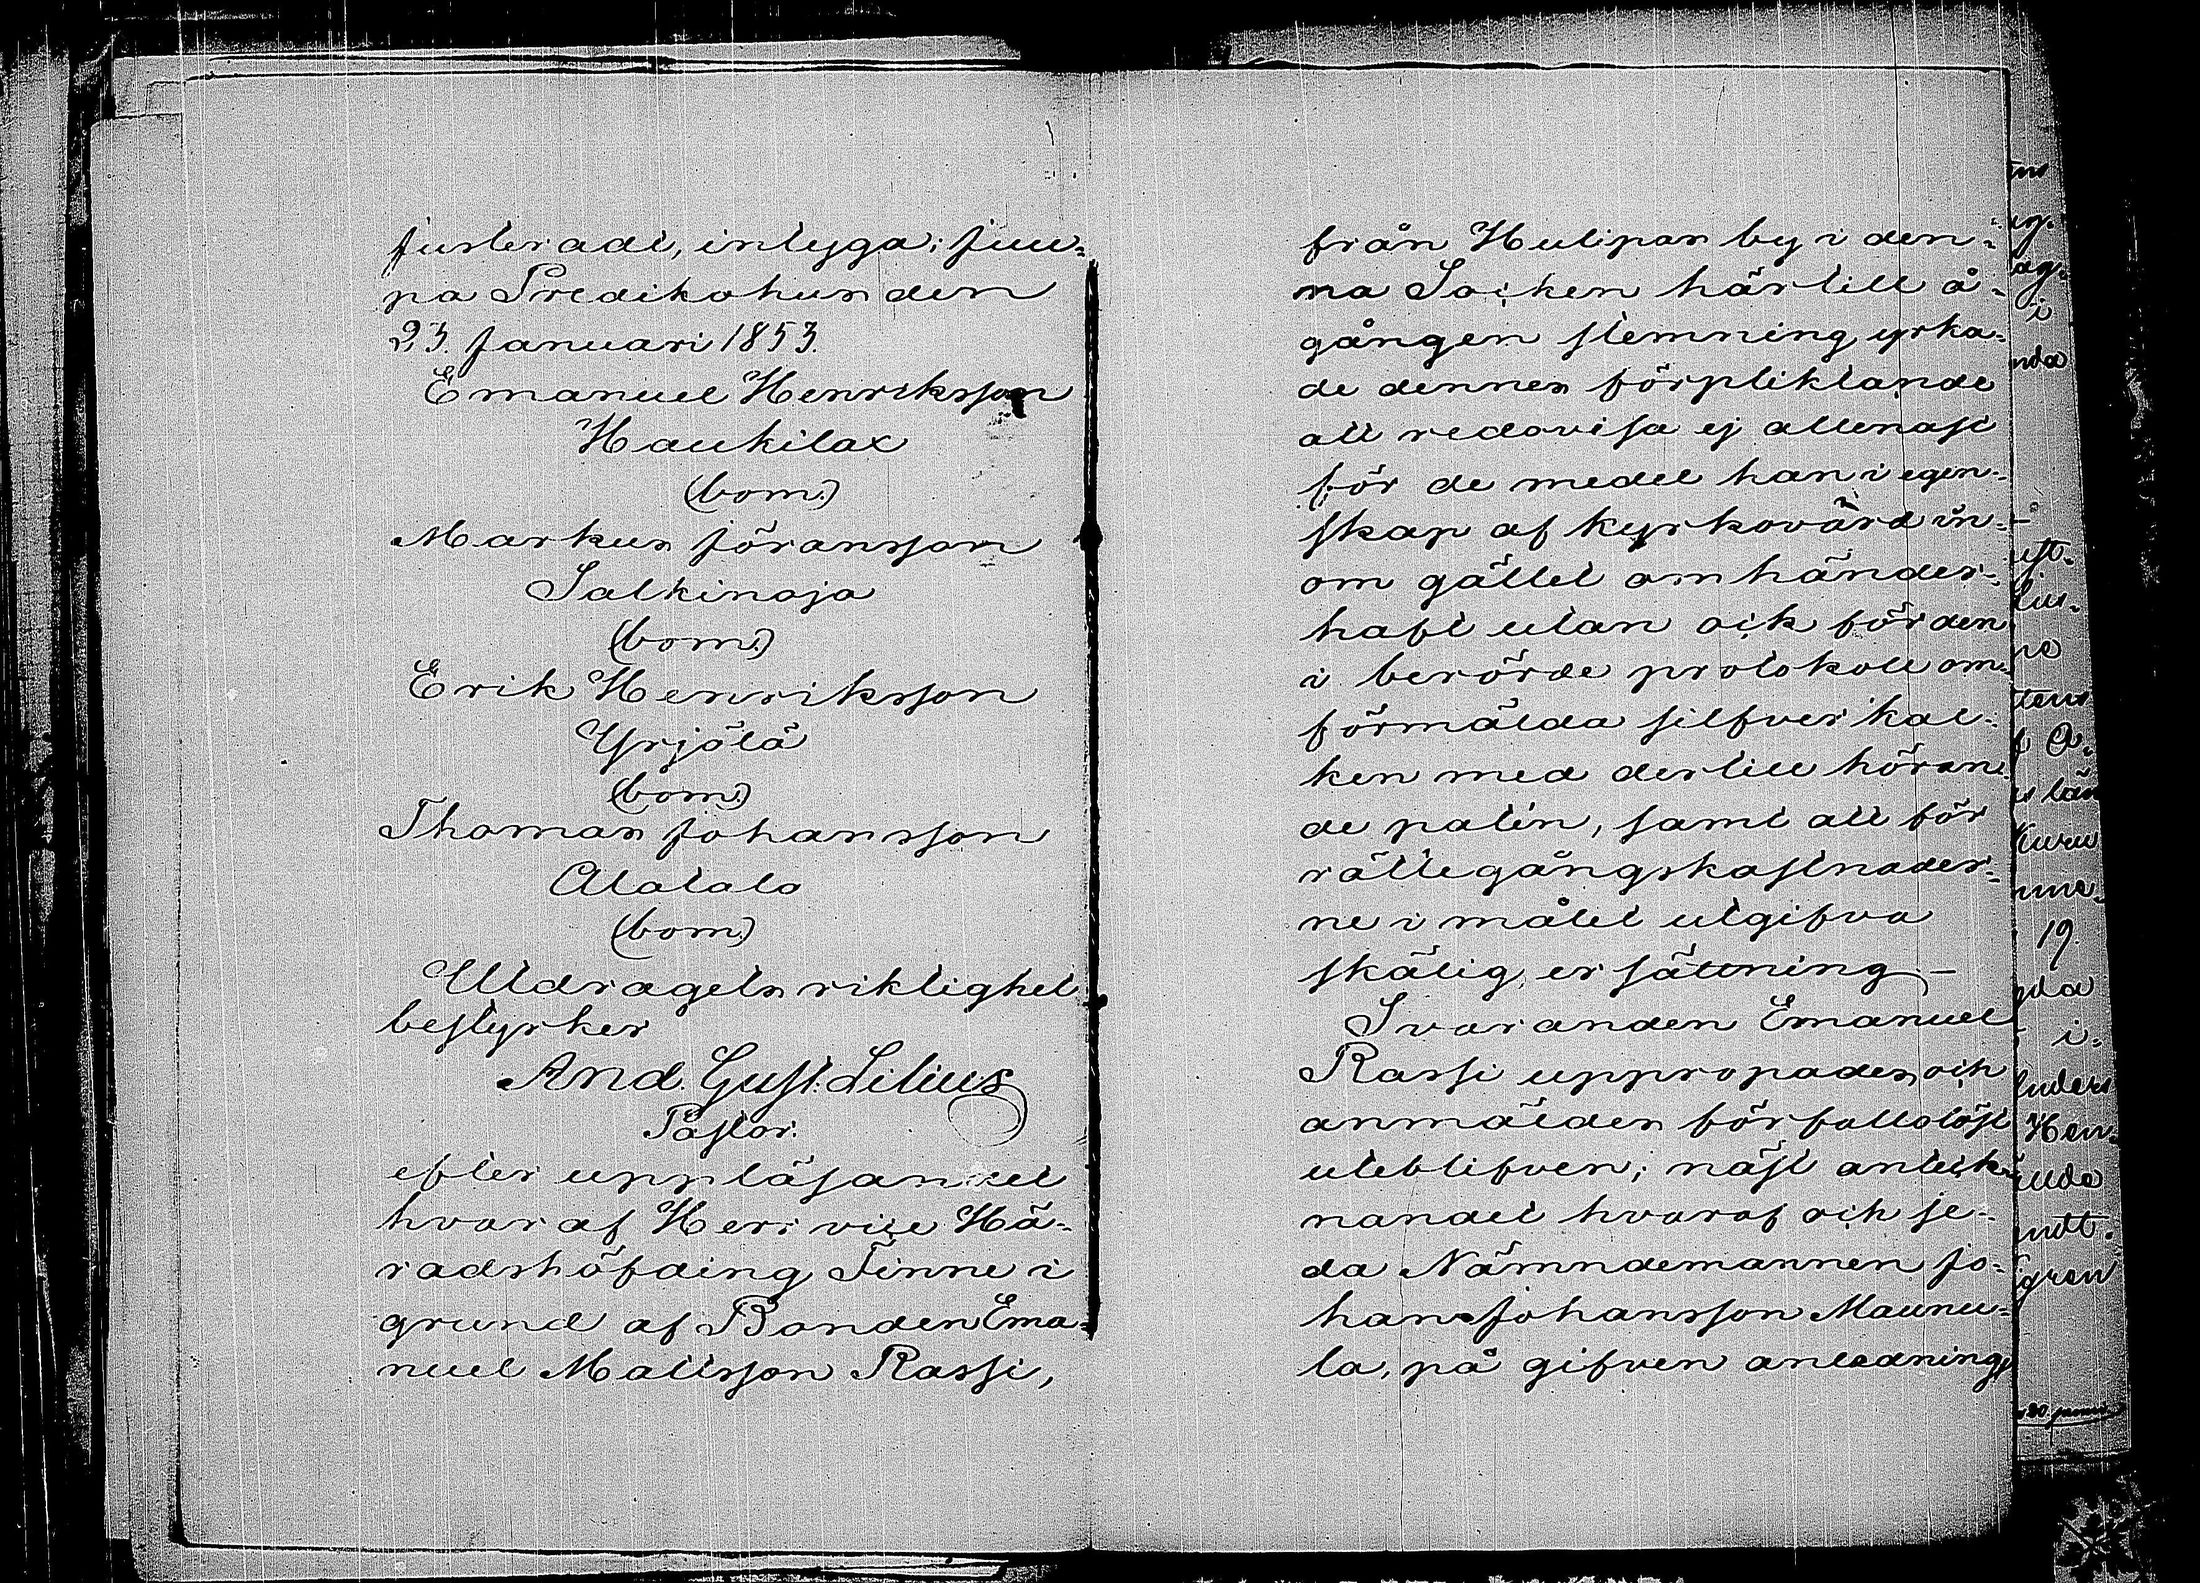 justeradt, intyga; Juu-
pa Predikohus den
23. Januari 1853.
Emanuel Henriksson
Haukilax
(bom.)
Markus Jöransson
Salkinoja
(bom.)
Erik Henriksson
Yrjölä
(bom.)
Thomas Johansson
Alatalo
(bom.)
Utdragets riktighet
bestyrker
And. Gust. Lilius
Pastor.
efter uppläsandet
hvaraf Herr vice Hä-
radshöfding Finne i
grund af Bonden Ema-
nuel Mattsson Rassi,
från Hulipas by i den-
na Socken härtill å-
gången stemning yrka-
de dennes förpliktande
att redovisa ej allenast
för de medel han i egen-
skap af kyrkovärd in-
om gället omhänder-
haft utan ock för den
i berörde protokoll om-
förmälda silfver kal-
ken med dertill höran-
de patén, samt att för
rättegångskostnader-
ne i målet utgifva
skälig ersättning.—
Svaranden Emanuel
Rassi uppropades och
anmäldes förfallolöst
uteblifven; näst anteck-
nandet hvaraf och se-
da Nämndemannen Jo-
han Johansson Maunu-
la, på gifven anledning,
ag-
i
nda
19.
i-
Hen-